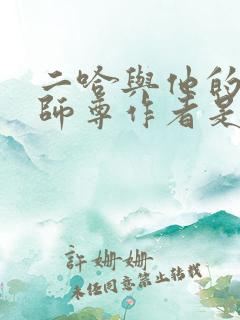 二哈與他的
師尊作者是
許姍姍
未經同意禁止轉載